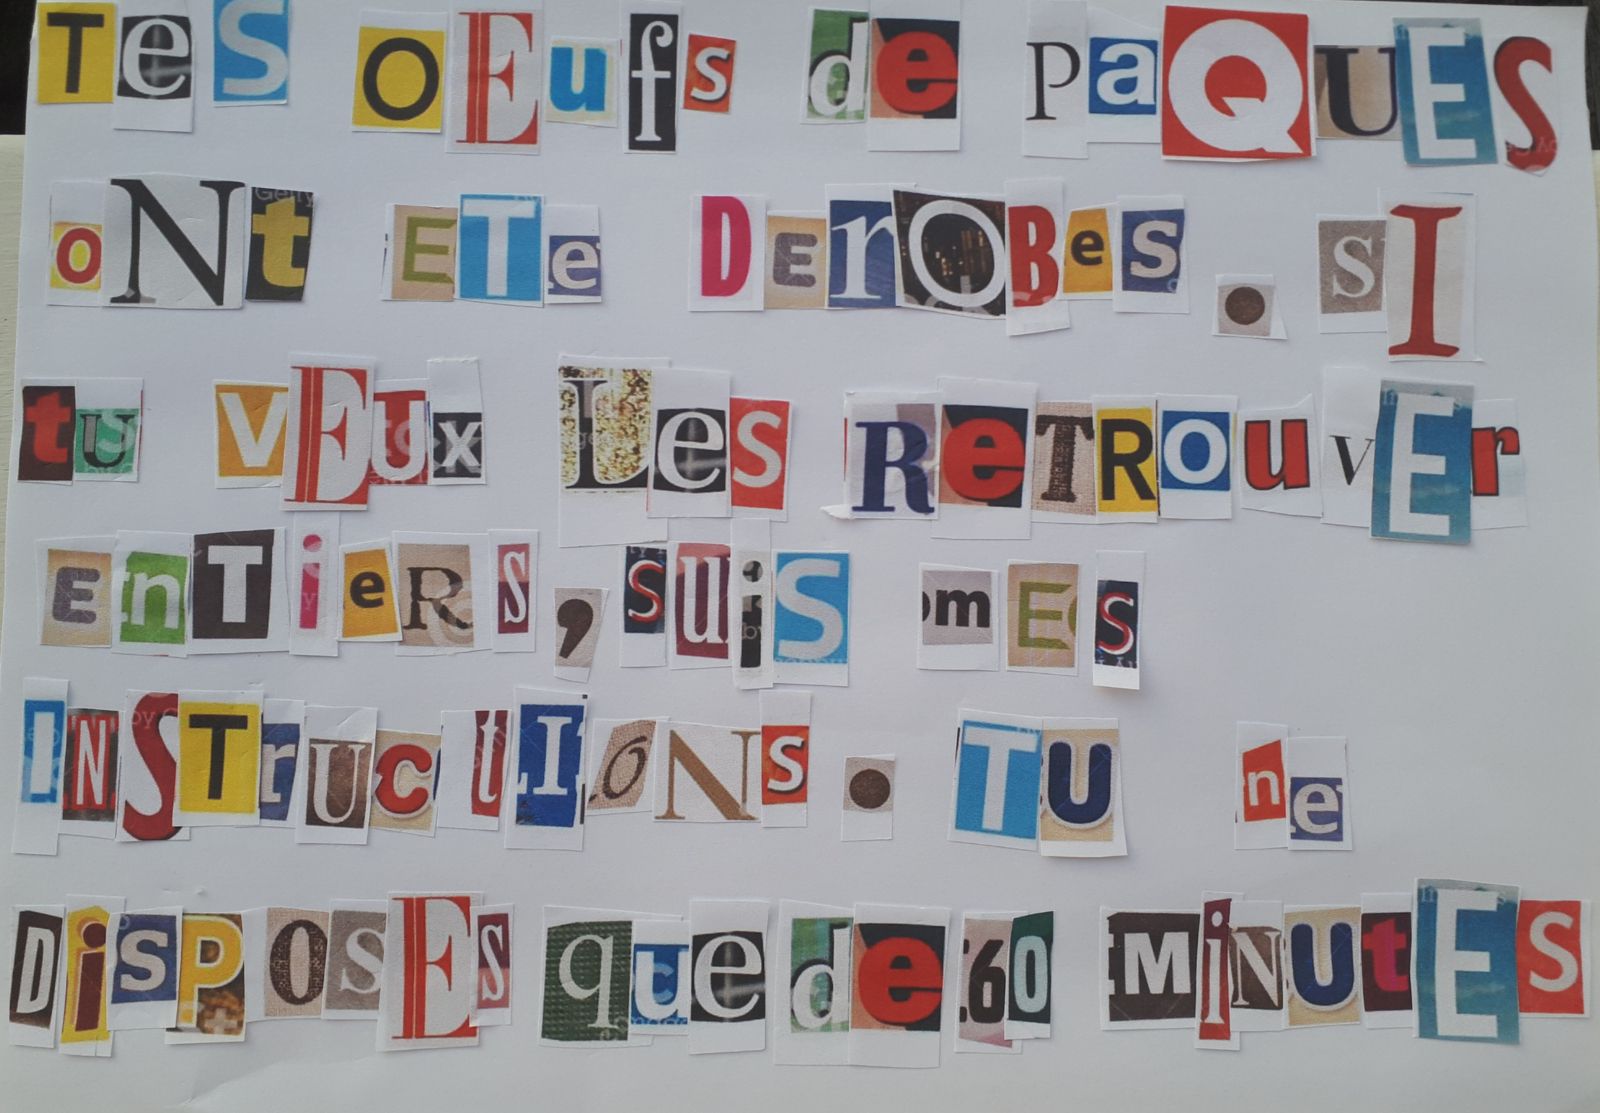 TeS OEufs de PaQUES
oNt ETe DErOBes. SI
tu vEUx Les ReTRouvEr
EnTiers, suiS mES
INSTrUctIoNs. TU ne
DisposEs que de 60 MiNUtES